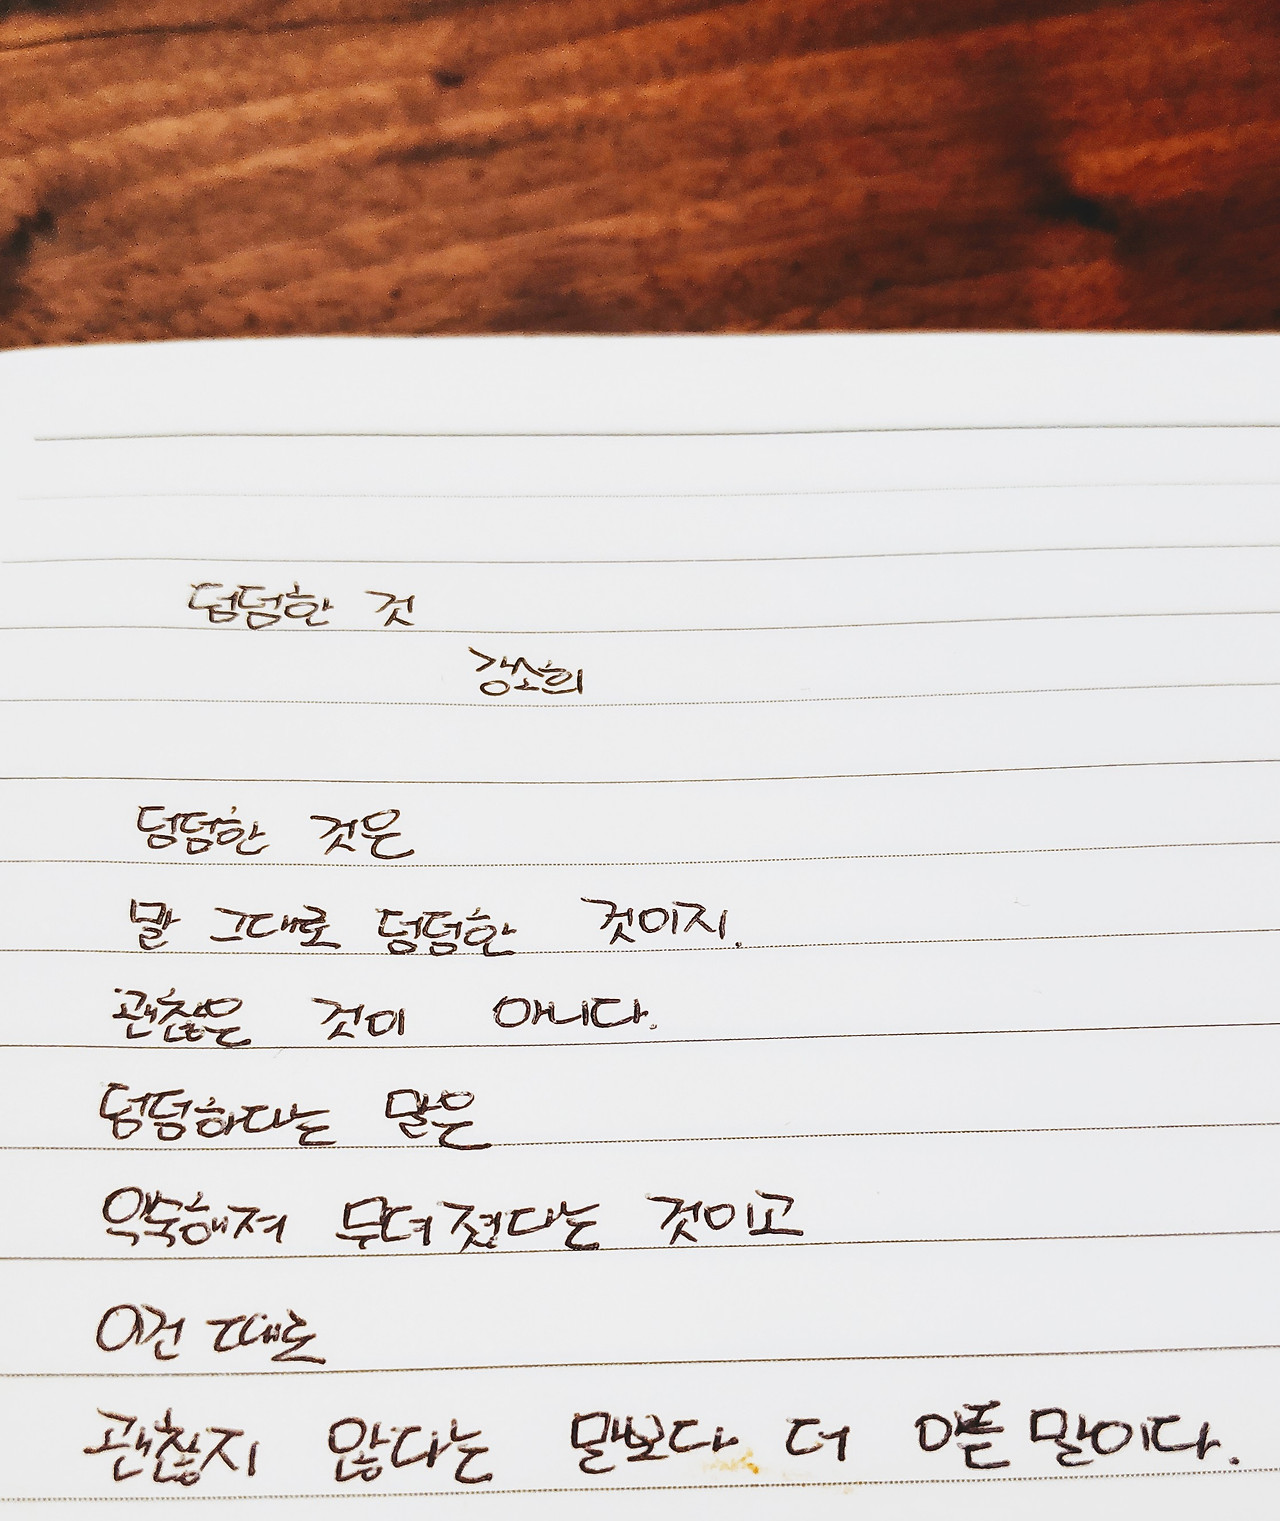 덤덤한 것
강소희
덤덤한 것은
말 그대로 덤덤한 것이지.
괜찮은 것이 아니다.
덤덤하다는 말은
익숙해져 무뎌졌다는 것이고
이건 때로
괜찮지 않다는 말보다 더 아픈 말이다.